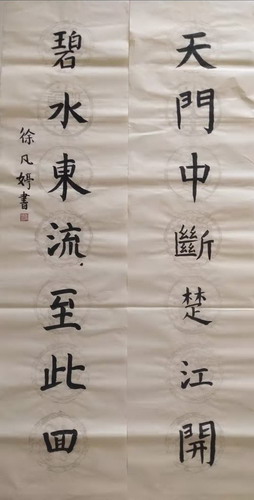 天門中斷楚江開
碧水東流至此回
徐凡婷書